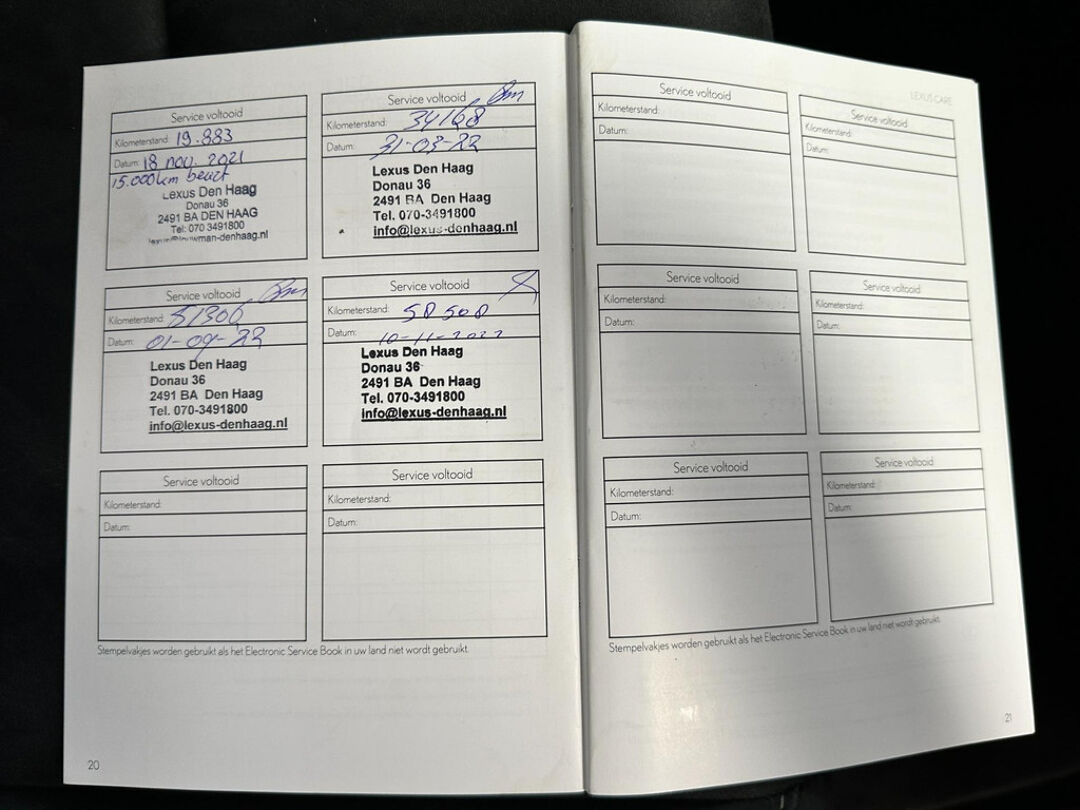 Service voltooid
Kilometerstand: 19.883
Datum: 18 nov. 2021
15.000km beurt
Lexus Den Haag
Donau 36
2491 BA DEN HAAG
Tel: 070 3491800
Service voltooid
Kilometerstand: 34168
Datum: 31-03-22
Lexus Den Haag
Donau 36
2491 BA Den Haag
Tel. 070-3491800
info@lexus-denhaag.nl
Service voltooid
Kilometerstand: 51306
Datum: 01-09-22
Lexus Den Haag
Donau 36
2491 BA Den Haag
Tel. 070-3491800
info@lexus-denhaag.nl
Service voltooid
Kilometerstand: 58508
Datum: 10-11-2022
Lexus Den Haag
Donau 36
2491 BA Den Haag
Tel. 070-3491800
info@lexus-denhaag.nl
Service voltooid
Kilometerstand:
Datum:
Service voltooid
Kilometerstand:
Datum:
Stempelvakjes worden gebruikt als het Electronic Service Book in uw land niet wordt gebruikt.
20
LEXUS CARE
Service voltooid
Kilometerstand:
Datum:
Service voltooid
Kilometerstand:
Datum:
Service voltooid
Kilometerstand:
Datum:
Service voltooid
Kilometerstand:
Datum:
Service voltooid
Kilometerstand:
Datum:
Service voltooid
Kilometerstand:
Datum:
Stempelvakjes worden gebruikt als het Electronic Service Book in uw land niet wordt gebruikt.
21